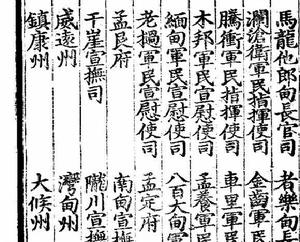 馬龍他郎甸長官司 者樂甸
瀾滄衛軍民指揮使司 金齒軍民
騰衝軍民指揮使司 車里軍民
木邦軍民宣慰使司 孟養軍民
緬甸軍民宣慰使司 八百大甸軍
老撾軍民宣慰使司 孟定府
孟艮府 南甸宣撫
干崖宣撫司 隴川宣撫
威遠州 灣甸州
鎮康州 大候州